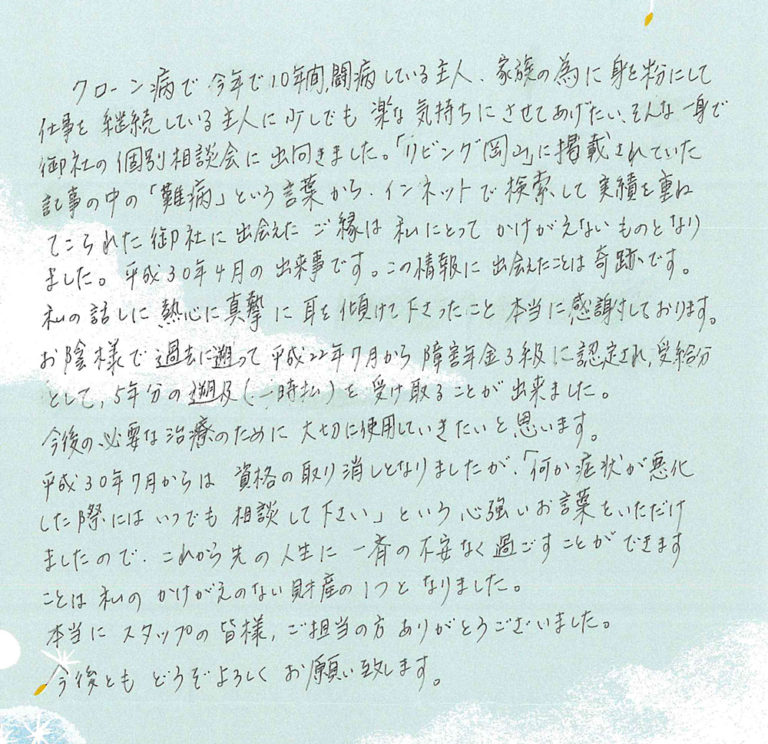 クローン病で今年で10年間、闘病している主人、家族の為に身を粉にして
仕事を継続している主人に少しでも楽な気持ちにさせてあげたい、そんな一身で
御社の個別相談会に出向きました。「リビング岡山」に掲載されていた
記事の中の「難病」という言葉から、インネットで検索して実績を重ね
てこられた御社に出会えたご縁は私にとってかけがえないものとなり
ました。平成30年4月の出来事です。この情報に出会えたことは奇跡です。
私の話しに熱心に真摯に耳を傾けて下さったこと本当に感謝しております。
お陰様で過去に遡って平成22年7月から障害年金3級に認定され、受給分
として、5年分の遡及(一時払)を受け取ることが出来ました。
今後の必要な治療のために大切に使用していきたいと思います。
平成30年7月からは資格の取り消しとなりましたが、「何か症状が悪化
した際にはいつでも相談して下さい」という心強いお言葉をいただけ
ましたので、これから先の人生に一斉の不安なく過ごすことができます
ことは私のかけがえのない財産の1つとなりました。
本当にスタッフの皆様、ご担当の方ありがとうございました。
今後ともどうぞよろしくお願い致します。